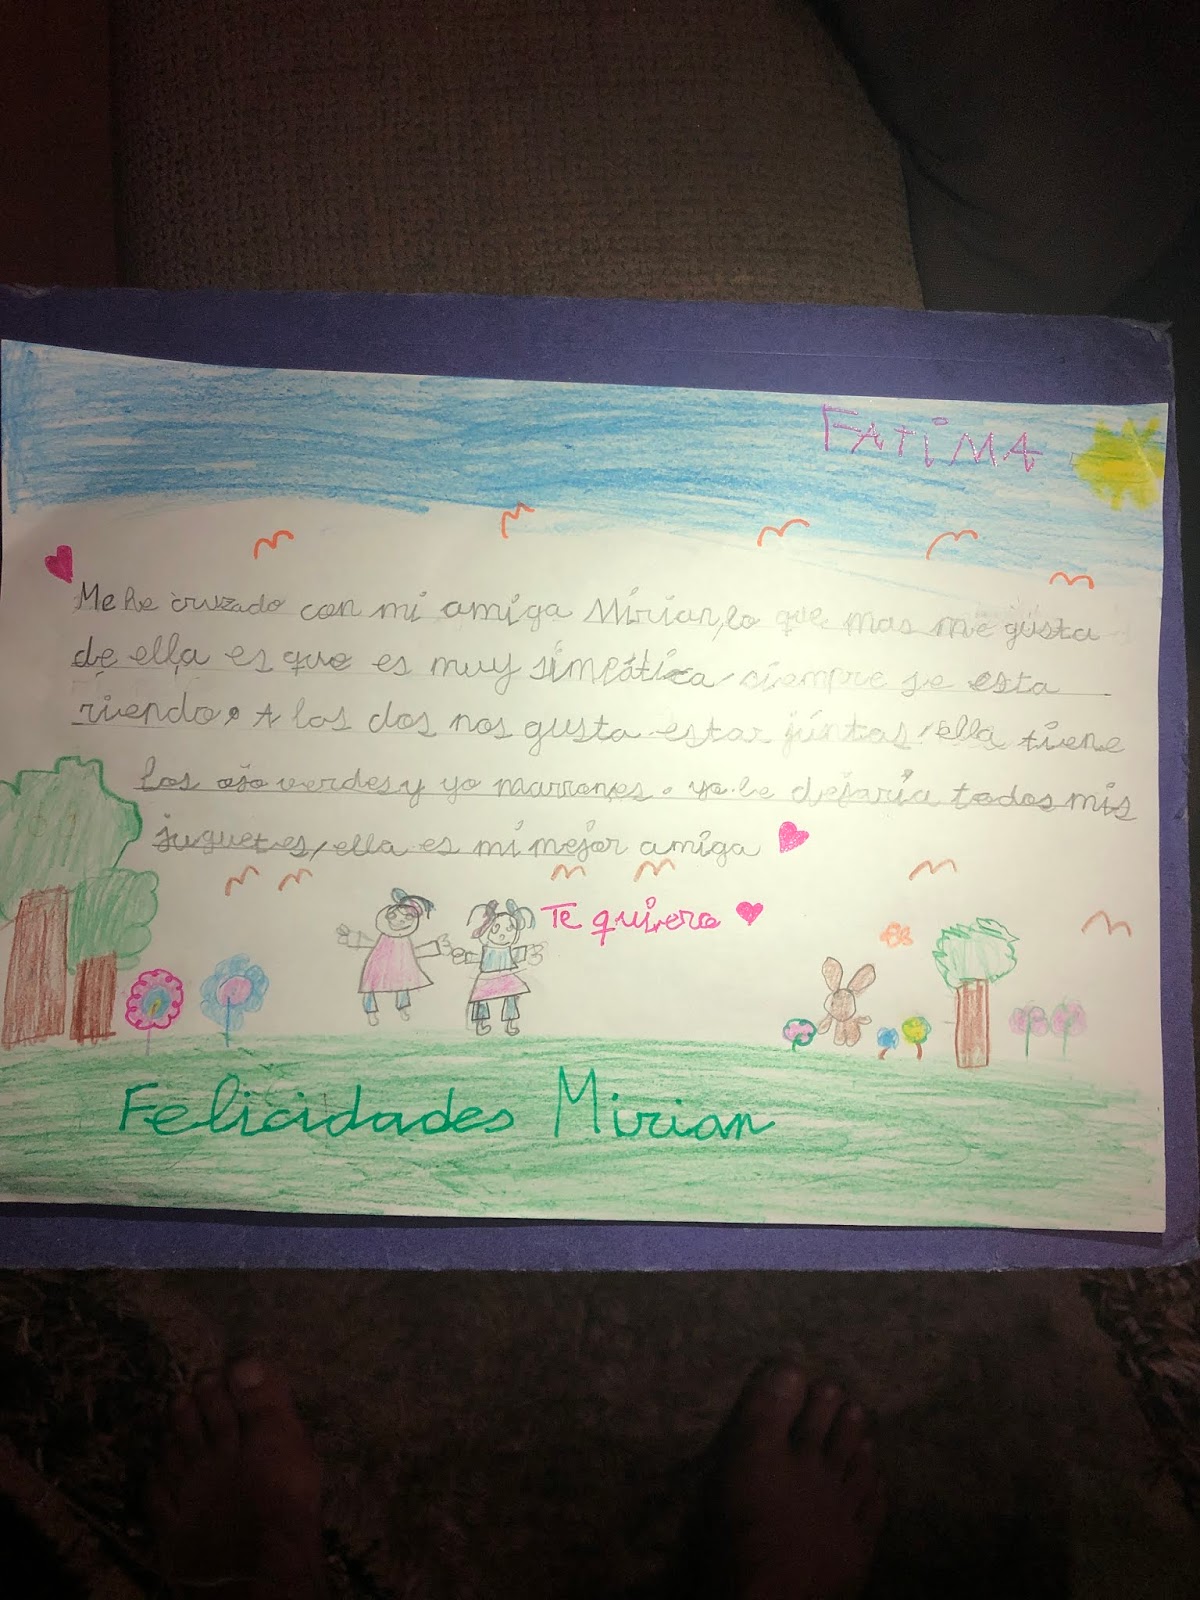 FATiMA
Me he cruzado con mi amiga Mirian, lo que mas me gusta
de ella es que es muy simpática, siempre se esta
riendo. A las dos nos gusta estar júntas, ella tiene
los ojo verdes y yo marrones. yo le dejaría todos mis
juguetes, ella es mi mejor amiga
Te quiero
Felicidades Mirian